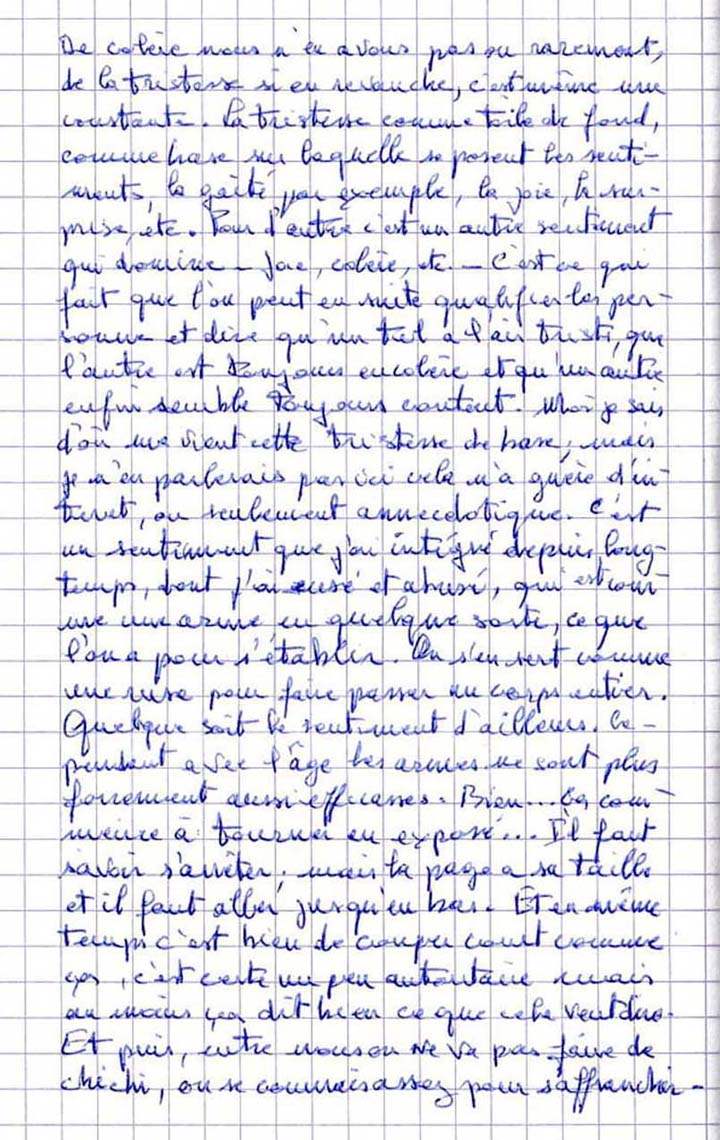 De colère nous n'en avons pas ou rarement,
de la tristesse si en revanche, c'est même une
constante. La tristesse comme toile de fond,
comme base sur laquelle se posent les senti-
ments, la gaîté par exemple, la joie, la sur-
prise, etc. Pour d'autre c'est un autre sentiment
qui domine – joie, colère, etc. – C'est ce qui
fait que l'on peut en suite qualifier les per-
sonne et dire qu'un tel a l'air triste, que
l'autre est toujours en colère et qu'un autre
enfin semble toujours content. Moi je sais
d'où me vient cette tristesse de base, mais
je n'en parlerais pas ici cela n'a guère d'in-
teret, ou seulement annecdotique. C'est
un sentiment que j'ai intégré depuis long-
temps, dont j'ai usé et abusé, qui est com-
me une arme en quelque sorte, ce que
l'on a pour s'établir. On s'en sert comme
une ruse pour faire passer un corps entier.
Quelque soit le sentiment d'ailleurs. Ce-
pendant avec l'âge les armes ne sont plus
forcement aussi efficasses. Bien... ça com-
mence à tourner en exposé... Il faut
savoir s'arrêter, mais la page a sa taille
et il faut aller jusqu'en bas. Et en même
temps c'est bien de couper court comme
ça, c'est certe un peu autoritaire mais
au moins ça dit bien ce que cela veut dire.
Et puis, entre nous on ne va pas faire de
chichi, on se connais assez pour s'affranchir –